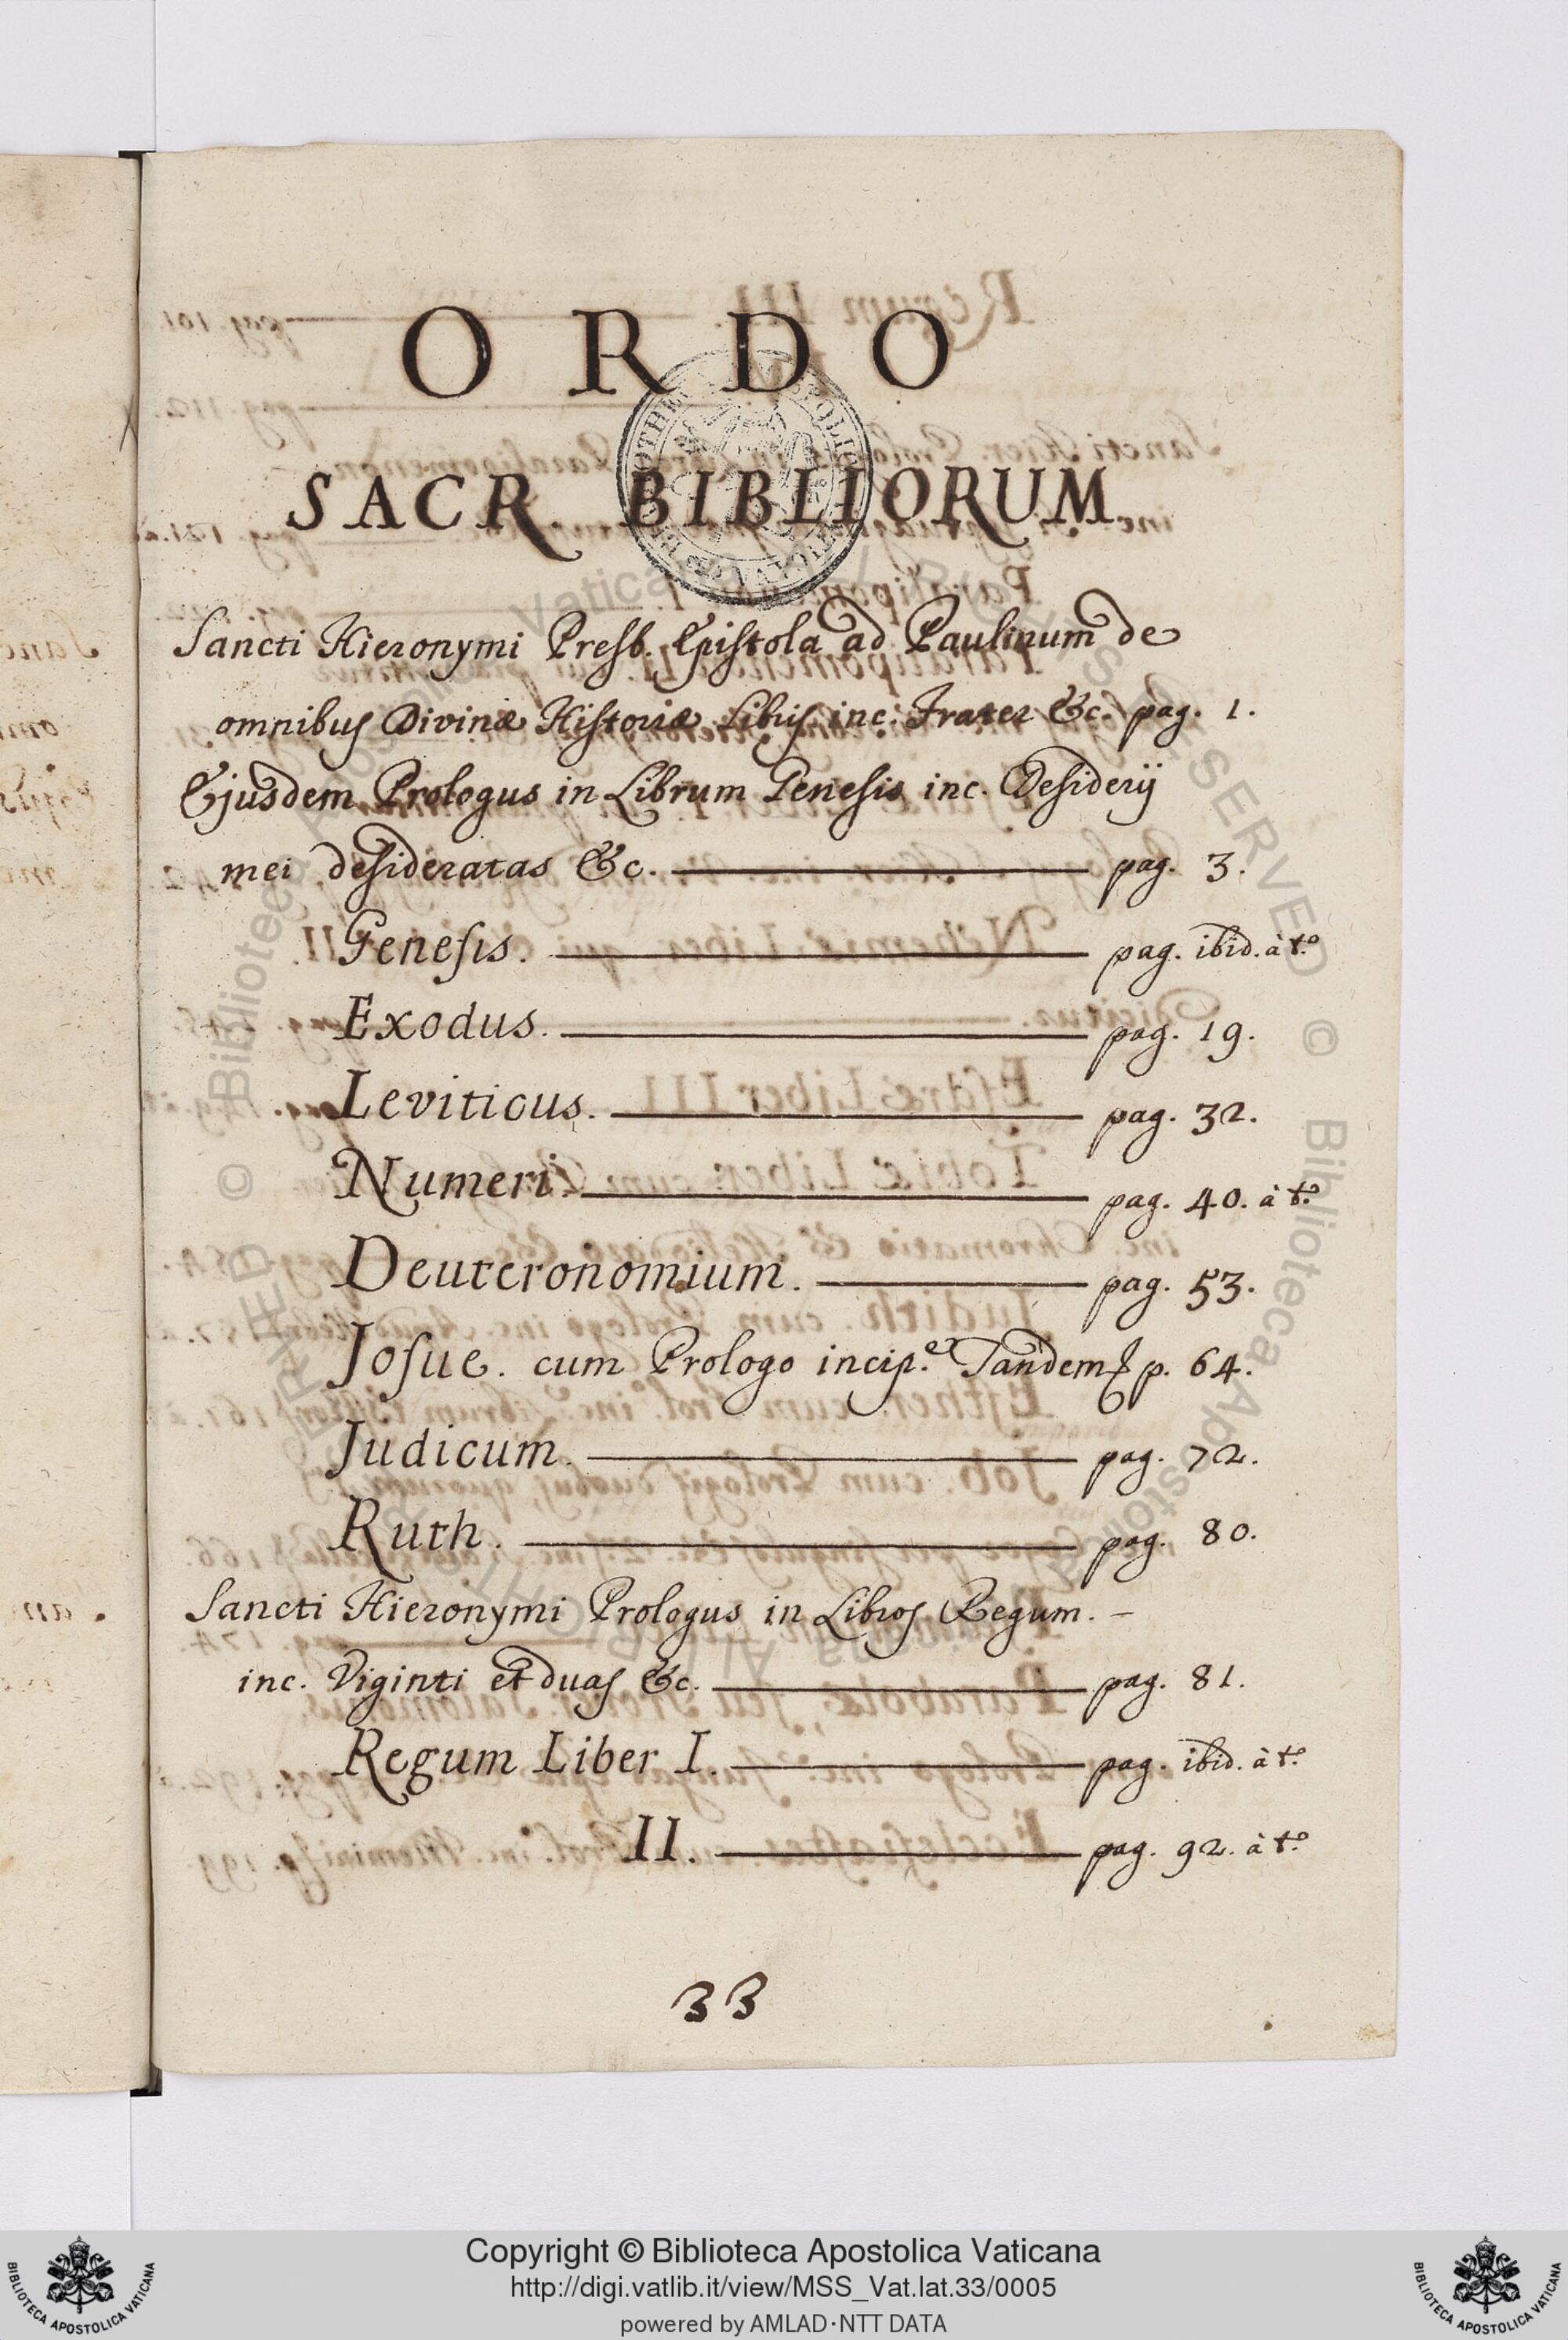 ORDO
SACR. BIBLIORUM
Sancti Hieronymi Presb. Epistola ad Paulinum de
omnibus Divinæ Historiæ Libris inc. Frater &c. pag. 1.
Ejusdem Prologus in Librum Genesis inc. Desiderij
mei desideratas &c. pag. 3.
Genesis. pag. ibid. à t.º
Exodus. pag. 19.
Leviticus. pag. 32.
Numeri. pag. 40. à t.º
Deuteronomium. pag. 53.
Josue. cum Prologo incip. Tandem p. 64.
Judicum. pag. 72.
Ruth. pag. 80.
Sancti Hieronymi Prologus in Libros Regum. –
inc. Viginti et duas &c. pag. 81.
Regum Liber I. pag. ibid. à t.º
II. pag. 92. à t.º
33
Copyright © Biblioteca Apostolica Vaticana
http://digi.vatlib.it/view/MSS_Vat.lat.33/0005
powered by AMLAD·NTT DATA
BIBLIOTECA APOSTOLICA VATICANA
BIBLIOTECA APOSTOLICA VATICANA